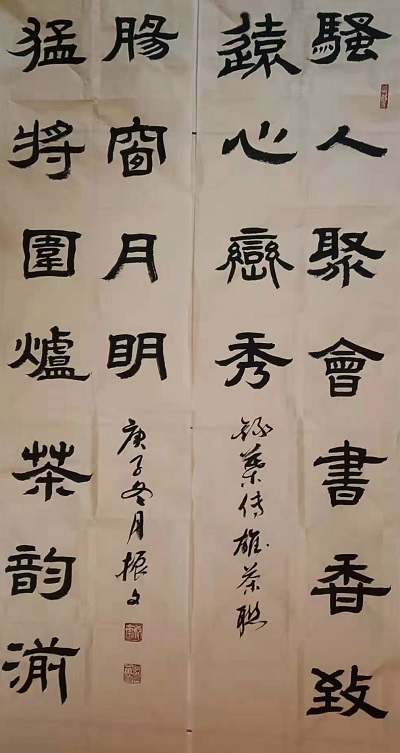 騷人聚會書香致
遠心巒秀
錄葉傳雄茶聯
猛將圍爐茶韵湔
腸窗月明
庚子冬月振文